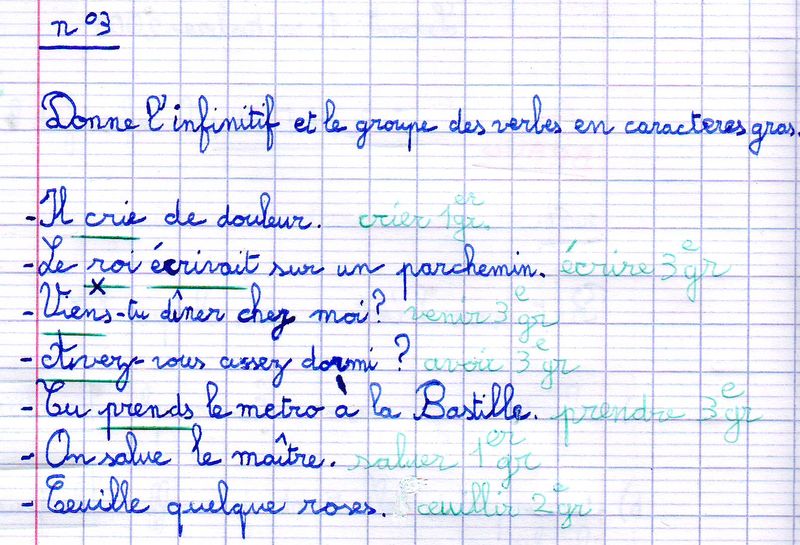 n°3
Donne l'infinitif et le groupe des verbes en caracteres gras.
- Il crie de douleur. crier 1er gr.
- Le roi écrivait sur un parchemin. écrire 3e gr
- Viens-tu dîner chez moi? venir 3e gr
- Avez-vous assez dormi? avoir 3e gr
- Tu prends le metro à la Bastille. prendre 3e gr
- On salue le maître. saluer 1er gr
- Ceuille quelque roses. ceuillir 2e gr